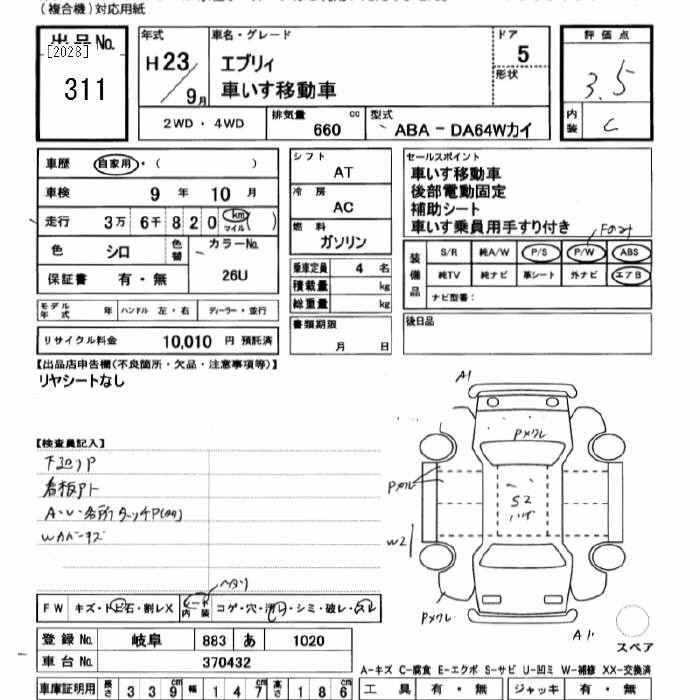 (複合機)対応用紙
出品No. [2028] 311
年式 H23／9月
車名・グレード エブリィ 車いす移動車
ドア 5
形状
評価点 3.5
内装 C
2WD・4WD
排気量 660 cc
型式 ABA－DA64Wカイ
車歴 自家用・( )
車検 9年 10月
走行 3万 6千 820 km マイル ( )
色 シロ 色替
カラーNo. 26U
保証書 有・無
シフト AT
冷房 AC
燃料 ガソリン
乗車定員 4名
積載量 kg
総重量 kg
セールスポイント
車いす移動車
後部電動固定
補助シート
車いす乗員用手すり付き
Fのみ
装備品
S/R 純A/W P/S P/W ABS
純TV 純ナビ 革シート 外ナビ エアB
ナビ型番:
モデル年式 年 ハンドル 左・右 ディーラー・並行
リサイクル料金 10,010 円 預託済
書類期限 月 日
後日品
【出品店申告欄(不良箇所・欠品・注意事項等)】
リヤシートなし
【検査員記入】
下廻りP
看板アト
A・U・各所タッチP
Wカバーキズ
A1
Pメクレ
Pメクレ
S2
ハゲ
W2
Pメクレ
A1
スペア
ヘタリ
FW キズ・トビ石・割レX
シート内装 コゲ・穴・汚レ・シミ・破レ・スレ
登録No. 岐阜 883 あ 1020
車台No. 370432
A－キズ C－腐食 E－エクボ S－サビ U－凹ミ W－補修 XX－交換済
車庫証明用 長さ 339cm 幅 147cm 高さ 186cm
工具 有・無 ジャッキ 有・無